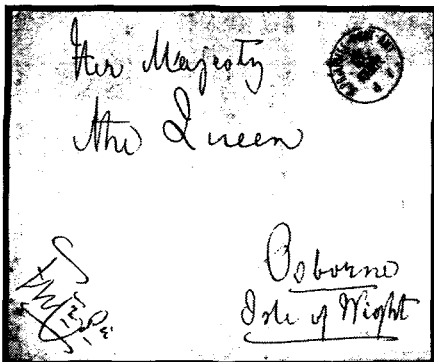 Her Majesty
the Queen
Osborne
Isle of Wight